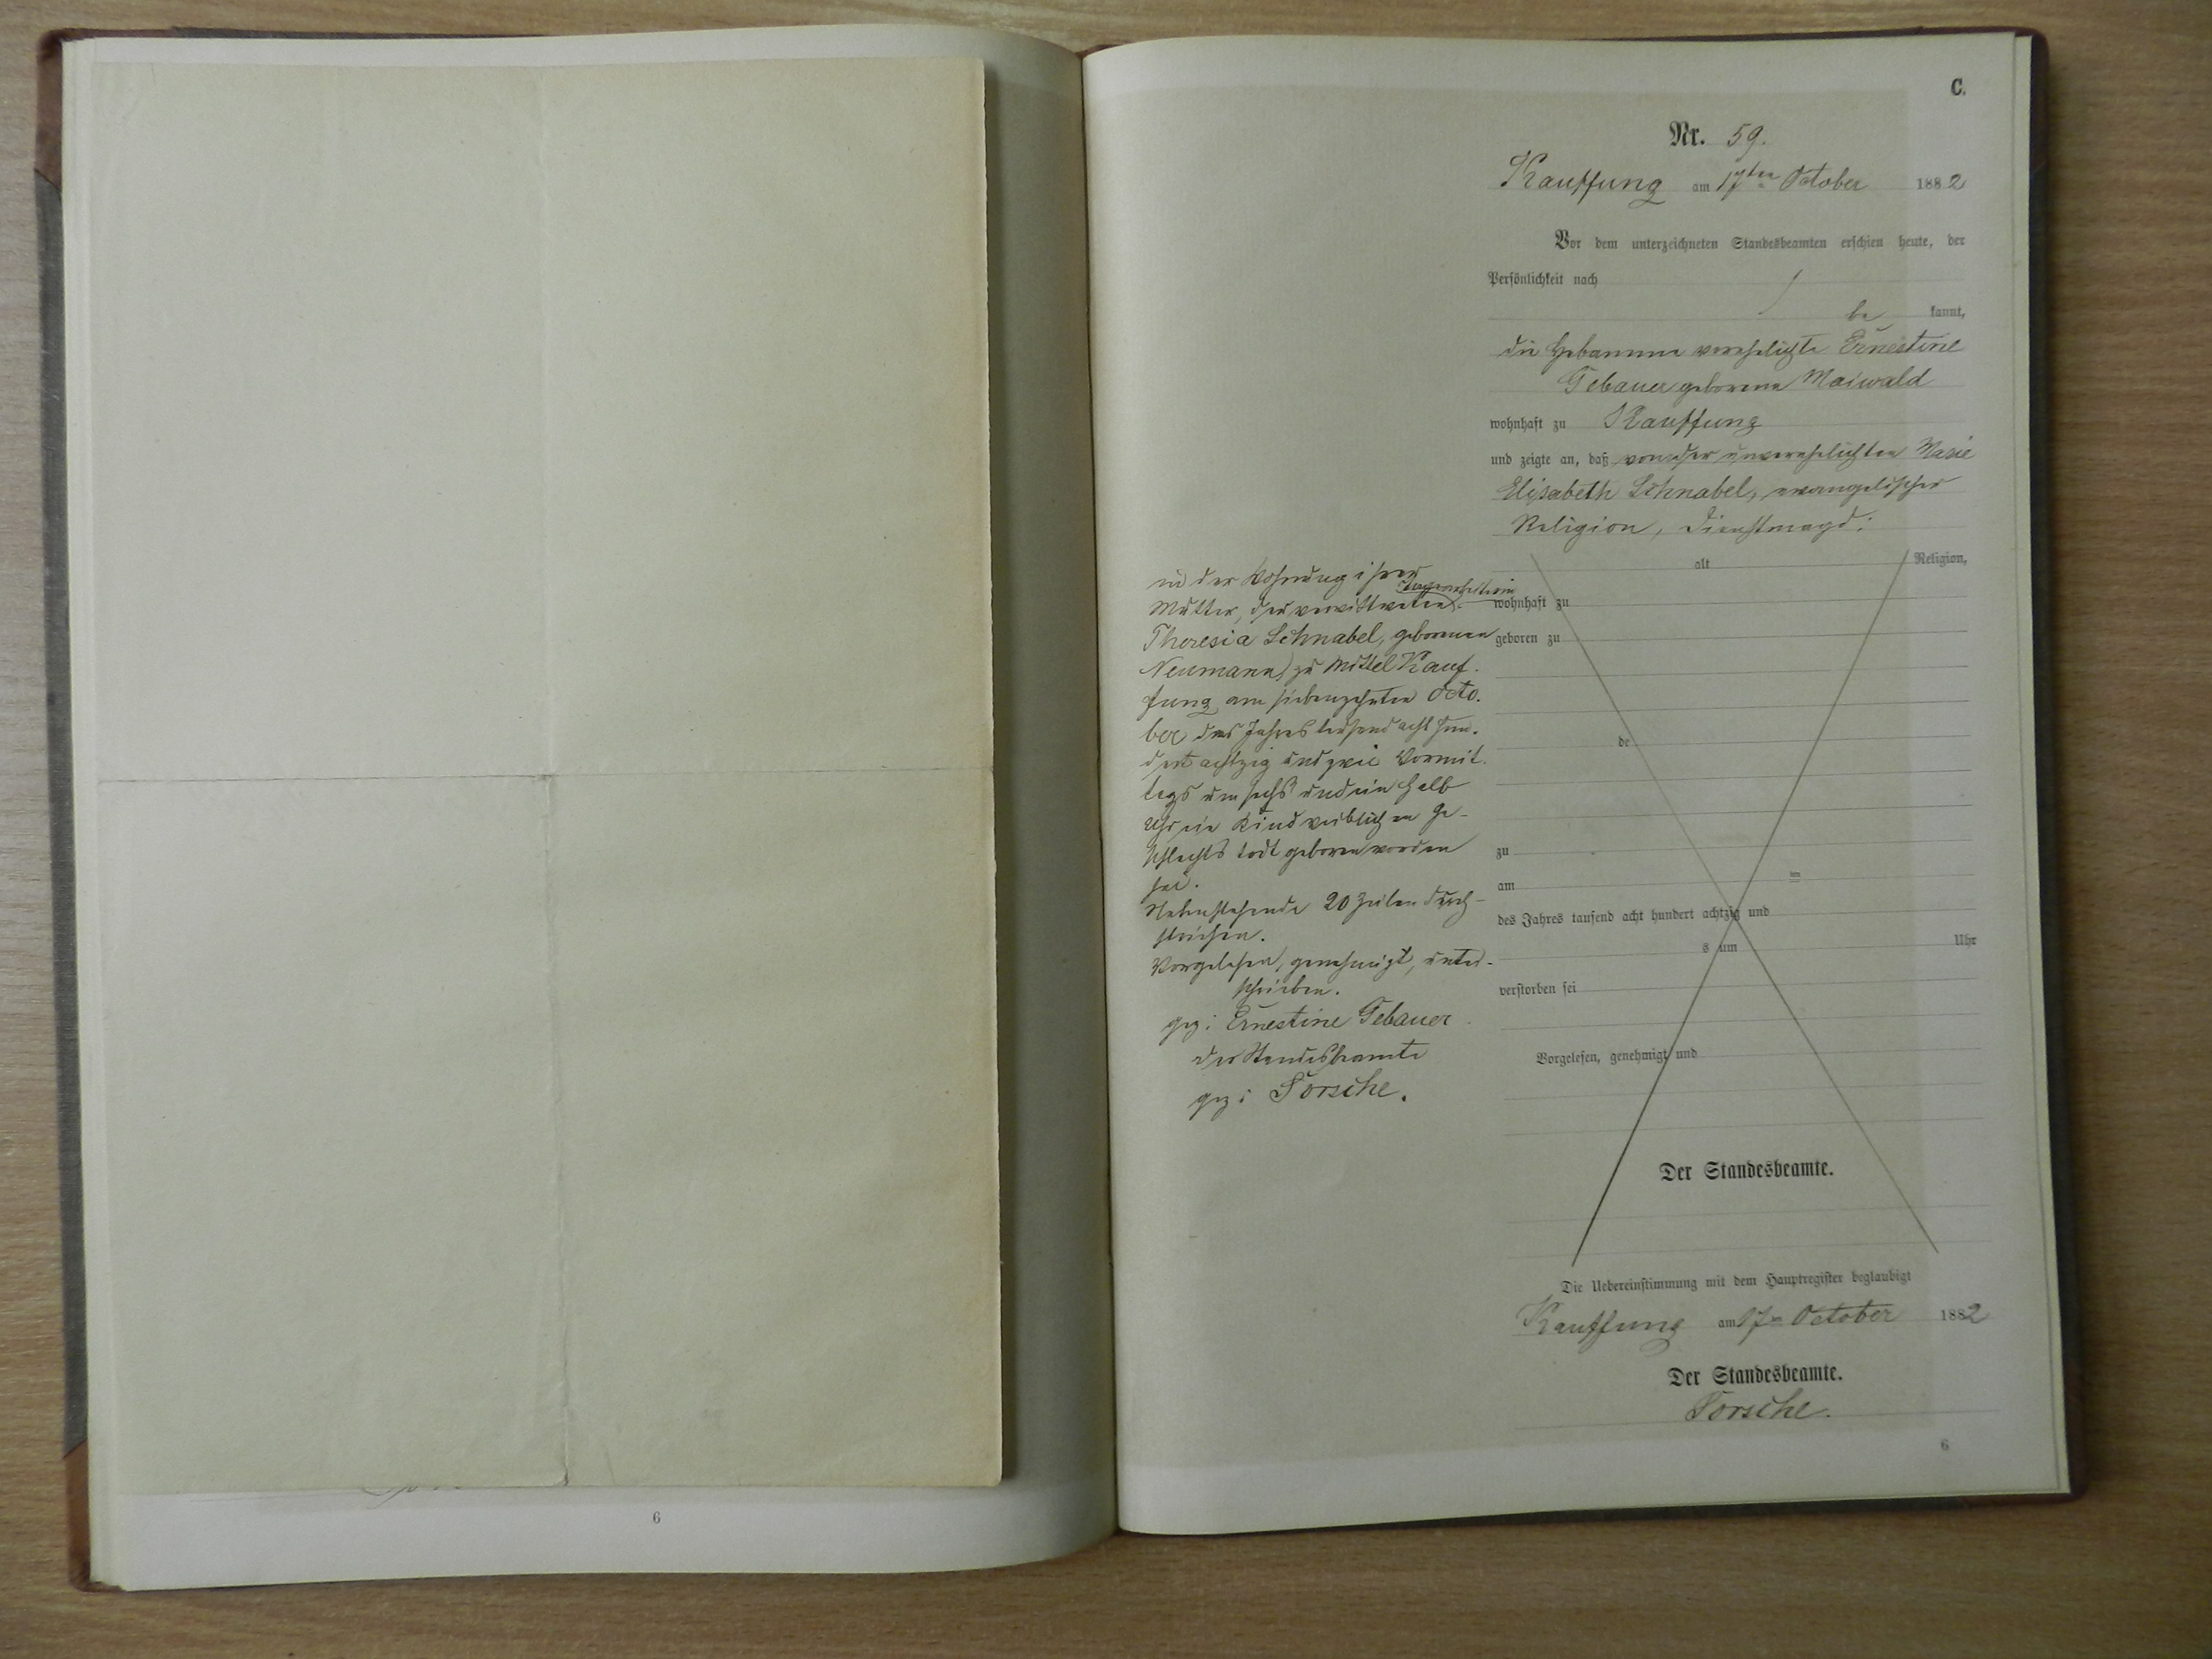 C.
Nr. 59.
Kauffung am 17ten October 1882
Vor dem unterzeichneten Standesbeamten erschien heute, der
Persönlichkeit nach
be kannt,
die Hebamme verehelichte Ernestine
Gebauer geborene Maiwald
wohnhaft zu Kauffung
und zeigte an, daß von der unverehelichten Marie
Elisabeth Schnabel, evangelischer
Religion, Dienstmagd;
alt Religion,
wohnhaft zu
geboren zu
de
zu
am ten
des Jahres tausend acht hundert achtzig und
s um Uhr
verstorben sei
Vorgelesen, genehmigt und
Der Standesbeamte.
in der Wohnung ihrer
Mutter, der verwittweten
Theresia Schnabel, geborenen
Neumann, zu Mittel Kauf-
fung am siebenzehnten Octo-
ber des Jahres tausend acht hun-
dert achtzig und zwei Vormit-
tags um sechs und ein halb
Uhr ein Kind weiblichen Ge-
schlechts todt geboren worden
sei.
Nebenstehende 20 Zeilen durch-
strichen.
Vorgelesen, genehmigt, unter-
schrieben.
gez: Ernestine Gebauer
der Standesbeamte
gez: Torsche.
Die Uebereinstimmung mit dem Hauptregister beglaubigt
Kauffung am 17ten October 1882
Der Standesbeamte.
Torsche.
6
6